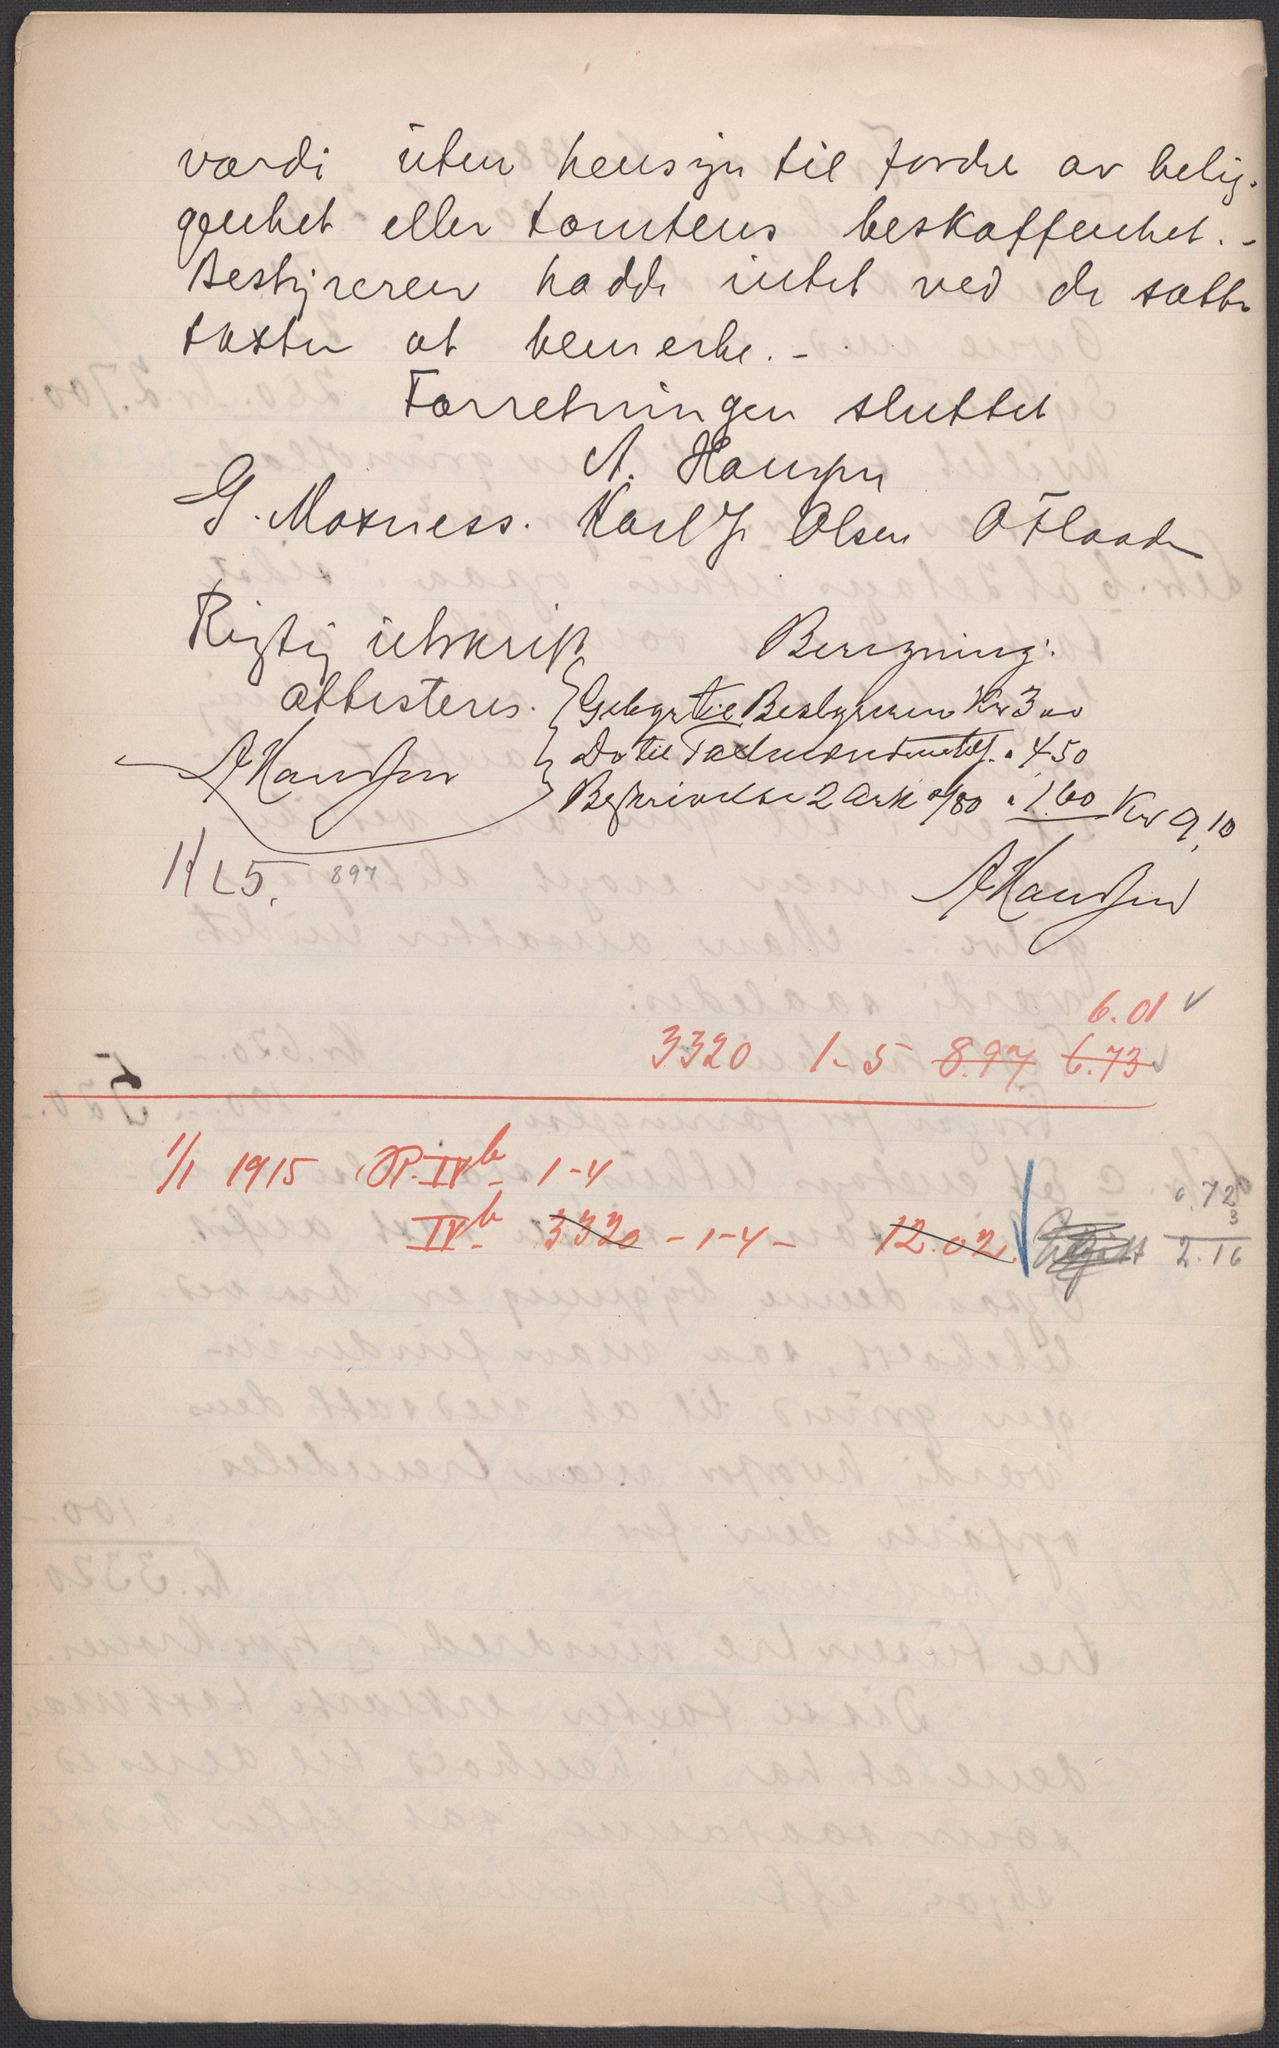 værdi uten hensyn til fordel av belig-
genhet eller tomtens beskaffenhet. -
Bestyreren hadde intet ved de satte
taxter at bemerke. -
Forretningen sluttet
A. Hansen
G. Moxness. Karl J. Olsen O Flaaden
Rigtig utskrift
attesteres.
A Hansen
Beregning:
Gebyr til Bestyreren Kr 3 00
Do til Taxtmænd " 4 50
Beskrivelse 2 Ark a/80 " 1.60 Kr 9,10
A Hansen
1/1 5. 897
6.01
3320 1-5 8.97 6.73
1/1 1915 IV b 1-4
IV b 3320 -1-4- 12.02
0.72
3
2.16